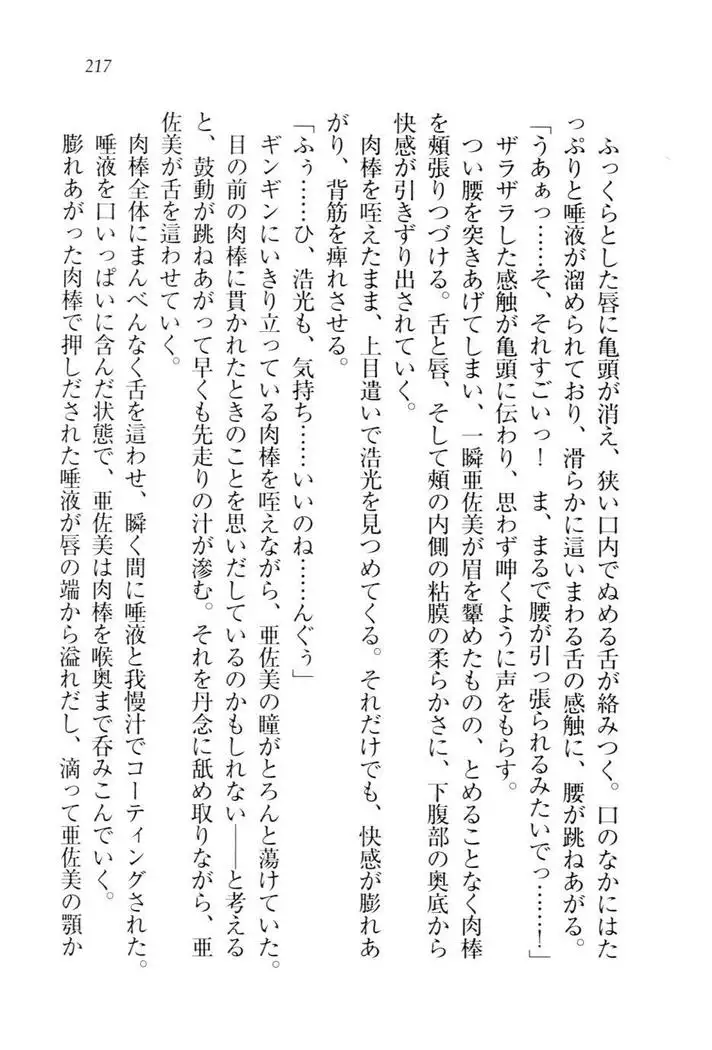 217
ふっくらとした唇に亀頭が消え、狭い口内でぬめる舌が絡みつく。口のなかにはた
っぷりと唾液が溜められており、滑らかに這いまわる舌の感触に、腰が跳ねあがる。
「うあぁっ……そ、それすごいっ！　ま、まるで腰が引っ張られるみたいでっ……！」
ザラザラした感触が亀頭に伝わり、思わず呻くように声をもらす。
つい腰を突きあげてしまい、一瞬亜佐美が眉を顰めたものの、とめることなく肉棒
を頬張りつづける。舌と唇、そして頬の内側の粘膜の柔らかさに、下腹部の奥底から
快感が引きずり出されていく。
肉棒を咥えたまま、上目遣いで浩光を見つめてくる。それだけでも、快感が膨れあ
がり、背筋を痺れさせる。
「ふぅ……ひ、浩光も、気持ち……いいのね……んぐぅ」
ギンギンにいきり立っている肉棒を咥えながら、亜佐美の瞳がとろんと蕩けていた。
目の前の肉棒に貫かれたときのことを思いだしているのかもしれない――と考える
と、鼓動が跳ねあがって早くも先走りの汁が滲む。それを丹念に舐め取りながら、亜
佐美が舌を這わせていく。
肉棒全体にまんべんなく舌を這わせ、瞬く間に唾液と我慢汁でコーティングされた。
唾液を口いっぱいに含んだ状態で、亜佐美は肉棒を喉奥まで呑みこんでいく。
膨れあがった肉棒で押しだされた唾液が唇の端から溢れだし、滴って亜佐美の顎か